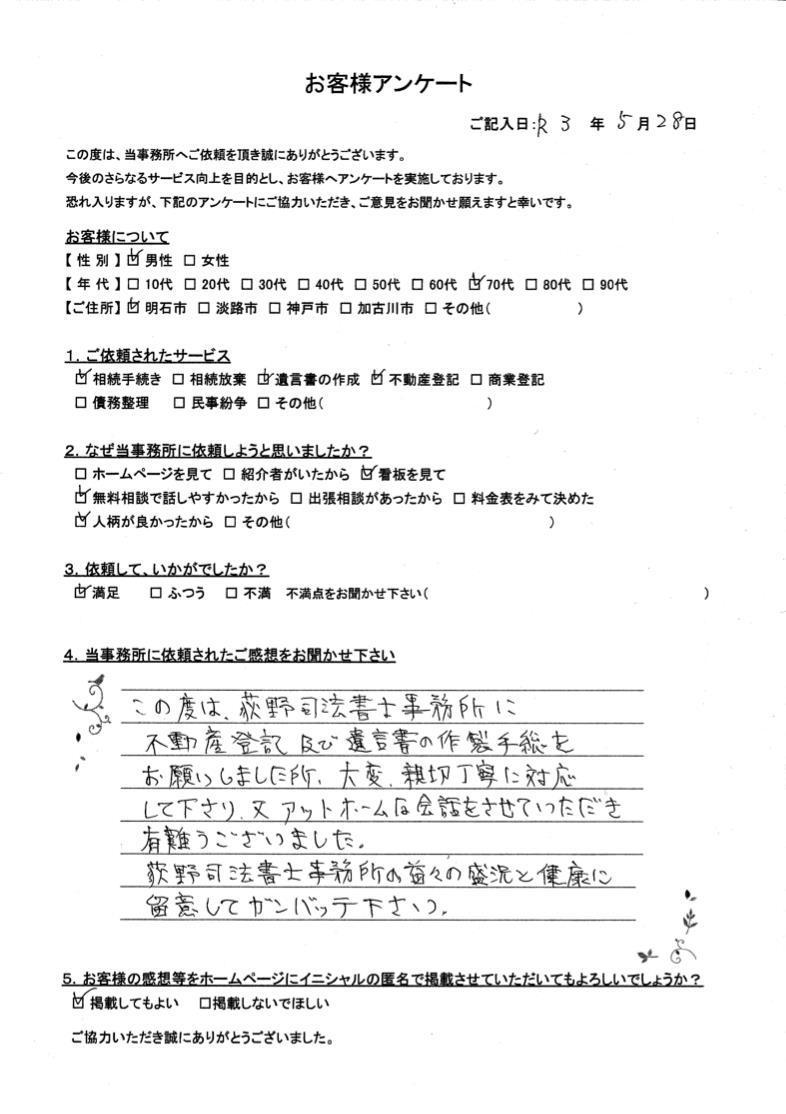 お客様アンケート
ご記入日:R 3 年 5 月 28 日
この度は、当事務所へご依頼を頂き誠にありがとうございます。
今後のさらなるサービス向上を目的とし、お客様へアンケートを実施しております。
恐れ入りますが、下記のアンケートにご協力いただき、ご意見をお聞かせ願えますと幸いです。
お客様について
【 性 別 】☑ 男性 □ 女性
【 年 代 】□ 10代 □ 20代 □ 30代 □ 40代 □ 50代 □ 60代 ☑ 70代 □ 80代 □ 90代
【ご住所】☑ 明石市 □ 淡路市 □ 神戸市 □ 加古川市 □ その他( )
1. ご依頼されたサービス
☑ 相続手続き □ 相続放棄 ☑ 遺言書の作成 ☑ 不動産登記 □ 商業登記
□ 債務整理 □ 民事紛争 □ その他( )
2. なぜ当事務所に依頼しようと思いましたか?
□ ホームページを見て □ 紹介者がいたから ☑ 看板を見て
☑ 無料相談で話しやすかったから □ 出張相談があったから □ 料金表をみて決めた
☑ 人柄が良かったから □ その他( )
3. 依頼して、いかがでしたか?
☑ 満足 □ ふつう □ 不満 不満点をお聞かせ下さい( )
4. 当事務所に依頼されたご感想をお聞かせ下さい
この度は、荻野司法書士事務所に
不動産登記 及び 遺言書の作製手続を
お願いしました所、大変、親切丁寧に対応
して下さり、又 アットホームな会話をさせていただき
有難うございました。
荻野司法書士事務所の益々の盛況と健康に
留意してガンバッテ下さい。
5. お客様の感想等をホームページにイニシャルの匿名で掲載させていただいてもよろしいでしょうか?
☑ 掲載してもよい □掲載しないでほしい
ご協力いただき誠にありがとうございました。